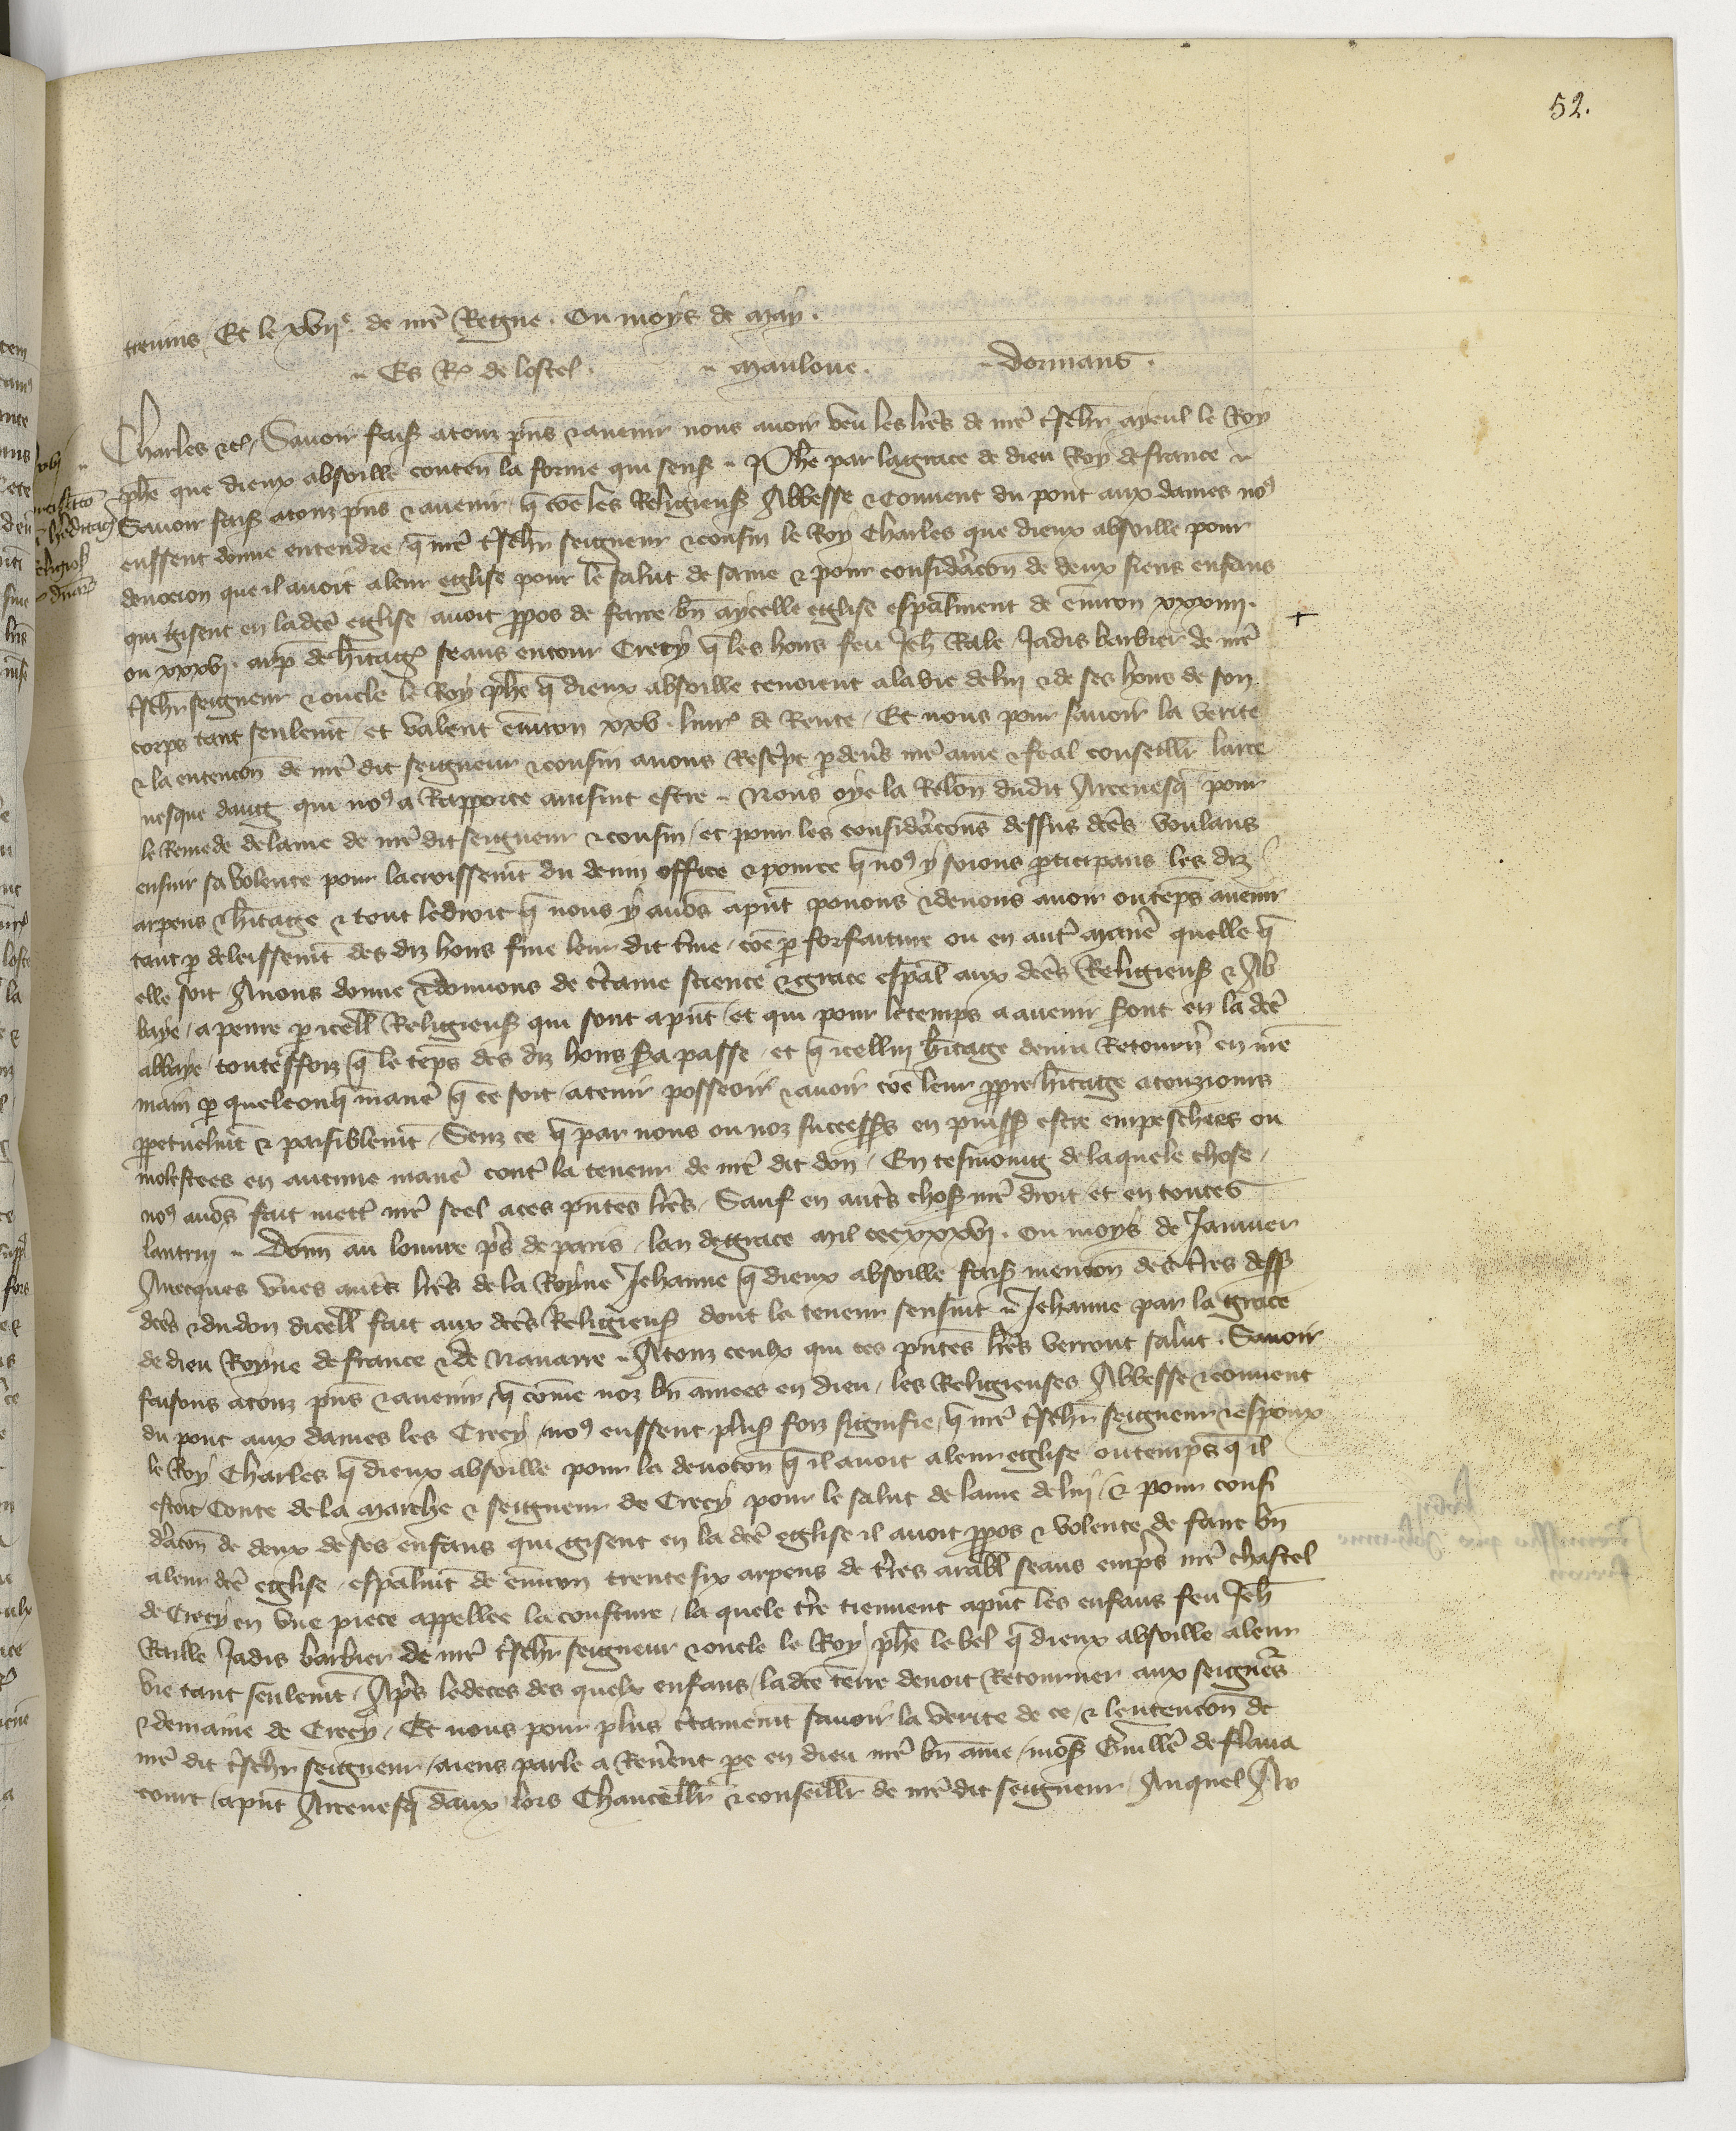 52.
treuins Et le xvije. de nrē Regne. Ou moys de May.
Es Req de lostel. Mauloue. Dormans.
Charles etc. Sauoir faisōs atouz pn̄s & auenir nous auoir veu les lr̄es de nr̄e t̄sch̄r ayeul le Roy
ph̄e que dieux absoille conten̄ la forme qui sensuit Ph̄e par la grace de dieu Roy de france
Sauoir faisōs atouz pn̄s & auenir q̄ cōe les Religieusȩs Abbesse & Conuent du pont aux dames no9
eussent donne entendre q̄ nr̄e t̄sch̄r seigneur & cousin le Roy Charles que dieux absoille pour
deuocion que il auoit a leur eglise pour le salut de same & pour considāco̅n de deux siens enfans
qui gisent en lad̄ce eglise auoit p̄pos de faire bn̄ aycelle eglise esp̄alment de enuiron xxxiiii.
ou xxxvi. arp̄ de h̄itage seans entour Crecy q̄ les hoirs feu Jeh̄ Rale Jadis barbier de nr̄e
t̄sch̄r seigneur & oncle le Roy ph̄e q̄ dieux absoille tenoient a la vie de lui & de ses hoirs de son
corps tant seulemt̄ et valent enuiron xxv. liur̄ de Rente Et nous pour sauoir la verite
& la entencōn de nr̄e dit seigneur & cousin auons Resc̄pt p̄ deuers nr̄e ame & feal conseillr̄ larce
uesque daug qui no9 a Rapporte ainsint estre Nous oye la Relōn dudit Arceuesq̄ pour
le Remede de lame de nr̄e dit seigneur & cousin et pour les considāco̅ns dessus dc̄es voulans
ensuir sa volente pour lacroissemt̄ du diuin office & pource q̄ no9 y soions p̄ticipans les diz
arpens & h̄itage & tout ledroit q̄ nous y auōs apn̄t pouons & deuons auoir ou tēps auenir
tant p̄ deleissemt̄ des diz hoirs sine leur dit t̄me cōe p̄ forfaiture ou en aut̄ manie᷑ quelle q̄
elle soit Auons donne & donnons de c̄taine science & grace esp̄al aux dc̄es Religieusȩs & Ab
baye apenre p̄ icell̄ Religieusȩs qui sont apn̄t et qui pour le temps a auenir s̄ont en la dc̄e
abbaye toutesfoiz q̄ le tēps des diz hoirs s̄a passe et q̄ icellui h̄itage deura Retourn̄ en nr̄e
main p̄ quelconq̄ manie᷑ q̄ ce soit atenir posseoir & auoir cōe leur p̄pre h̄itage atouziours
p̄petuelmt̄ & paisiblemt̄ Senz ce q̄ par nous ou noz successrs en puissȩt estre empeschees ou
molestees en aucune manie᷑ cont̄ la teneur de nr̄e dit don En tesmoing de laquele chose
no9 auōs fait mett̄ nr̄e seel aces pn̄tes lr̄es Sauf en aut̄s chosȩs nr̄e droit et en toutes
lautrui Donn̄ au louure p̄s de paris lan de grace Mil cccxxxvi. ou moys de Januier
Auecques vnes aut̄s lr̄es de la Royne Jehanne q̄ dieux absoille faisȩs mencōn des t̄res dess9
dc̄es & du don dicell̄ fait aux dc̄es Religieusȩs dont la teneur sensuit Jehanne par la grace
de dieu Royne de france & de Nauarre Atouz ceulx qui ces pn̄tes lr̄es verront salut. Sauoir
faisons atouz pn̄s & auenir q̄ cōme noz bn̄ amees en dieu les Religieuses Abbesse & conuent
du pont aux dames les Crecy no9 eussent plusȩ foiz signifie q̄ nr̄e t̄sch̄r seigneur & espoux
le Roy Charles q̄ dieux absoille pour la deuocōn q̄ il auoit a leur eglise ou temps q̄ il
estoit Conte de la Marche & seigneur de Crecy pour le salut de lame de lui & pour consi
dācōn de deux de ses enfans qui gisent en la dc̄e eglise il auoit p̄pos & volente de faire bn̄
aleur dc̄e eglise esp̄almt̄ de enuiron trente six arpens de t̄res arabl̄ seans emp̄s nr̄e chastel
de Crecy en vne piece appellee la cousture la quele t̄re tiennent apn̄t les enfans feu Jeh̄
Raille Jadis barbier de nr̄e t̄sch̄r seigneur & oncle le Roy ph̄e lebel q̄ dieux absoille aleur
vie tant seulemt̄ Ap̄s ledeces des quelx enfans ladc̄e terre deuoit Retourner aux seigne᷑s
& demaine de Crecy Et nous pour plus c̄tainemt̄ sauoir la verite de ce & lentencōn de
nr̄e dit t̄sch̄r seigneur aiens parle a Reue᷑ent pe en dieu nr̄e bn̄ ame mosȩ Guille᷑ de flaua
court apn̄t Arceuesq̄ daux lors Chancellr̄ & conseillr̄ de nr̄e dit seigneur Auquel Ar